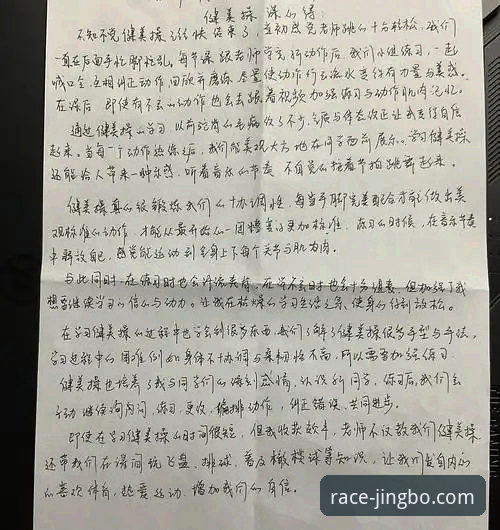 健美操 课心得:
不知不觉健美操了经快结束了,当初感觉老师跳的十分轻松,我们
一直在后面手忙脚忙乱,每节课跟老师学完新动作后,我们小组练习,一起
喊口令,互相纠正动作回顾并磨练,尽量使动作行云流水变得有力量与美感。
在课后 即使有不会的动作也会去跟着视频加强练习与动作肌肉记忆。
通过健美操的学习,以前驼背的毛病改了不少,气质与体态改正让我变得自信
起来。当每一个动作熟练之后,我们能美观大方地在同学面前展示。学习健美操
还能给人带来一种乐感,听着音乐的节奏 不自觉的按着节拍跳跃起来。
健美操真的很锻炼我们的协调性,每当手脚完美配合才能做出美
观标准的动作,才能从最开始的一团糟变得更加标准,练习的时候,在音乐节奏
中释放自己,感觉能运动到全身上下每个关节与肌肉。
与此同时,在练习时也会汗流夹背,在学不会时也会十分沮丧,但加强了我
想要继续学习的信心与动力。让我在枯燥的学习生活之余,使身心得到放松。
在学习健美操的过程中也学会到很多东西,我们了解了健美操很多手型与手法,
学习过程中的困难例如身体不协调与柔韧性不高,所以需要加强练习
健美操也培养了我与同学们的深刻感情,认识新同学,练习后,我们会
主动继续询问 练习、更改、编排动作,纠正错误、共同进步。
即使在学习健美操的时间很短,但我收获颇丰,老师不仅教我们健美操
还带我们在课间玩飞盘、排球、普及橄榄球等知识,让我们发自内心
的喜欢体育,热爱运动,增加我们的自信。
race-jingbo.com